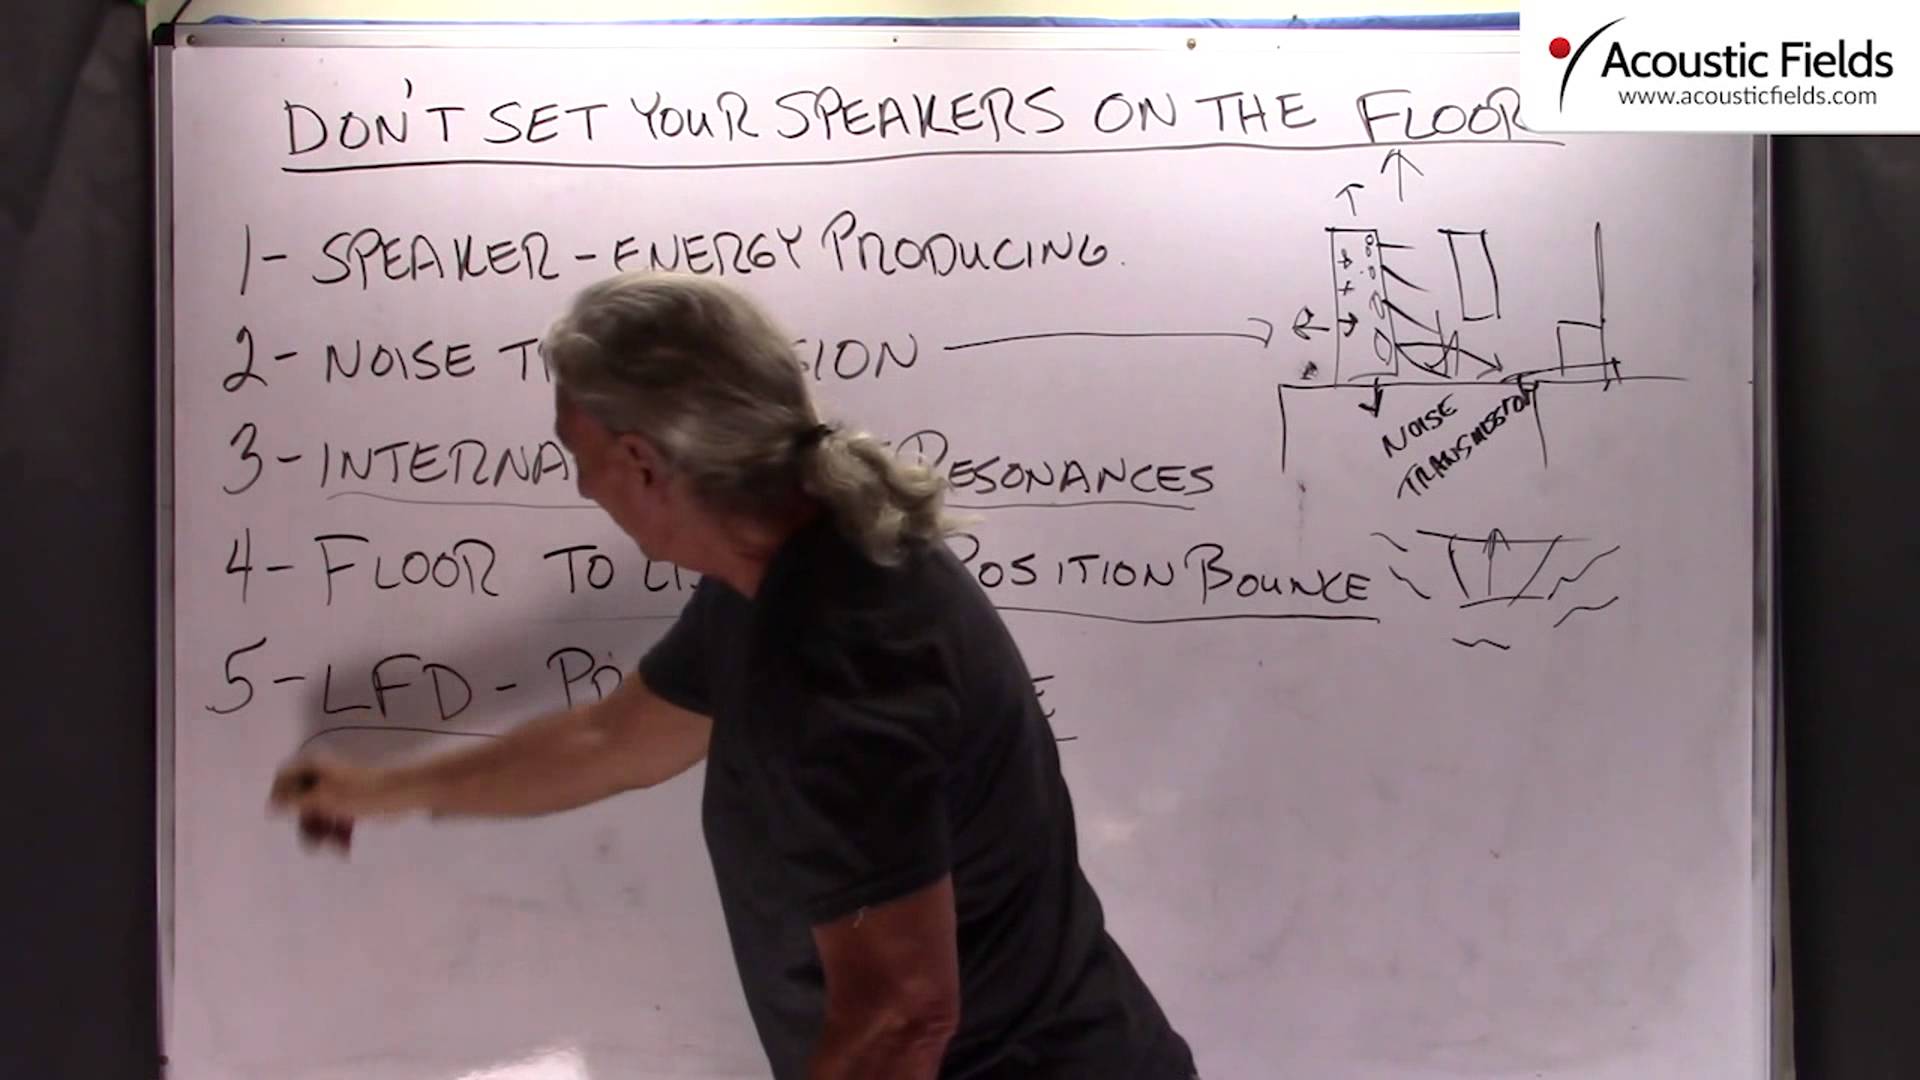 Acoustic Fields
www.acousticfields.com
DON'T SET YOUR SPEAKERS ON THE FLOOR
1- SPEAKER - ENERGY PRODUCING.
2- NOISE
3- RESONANCES
4- FLOOR TO POSITION BOUNCE
5- LFD -
NOISE
TRANSMISSION